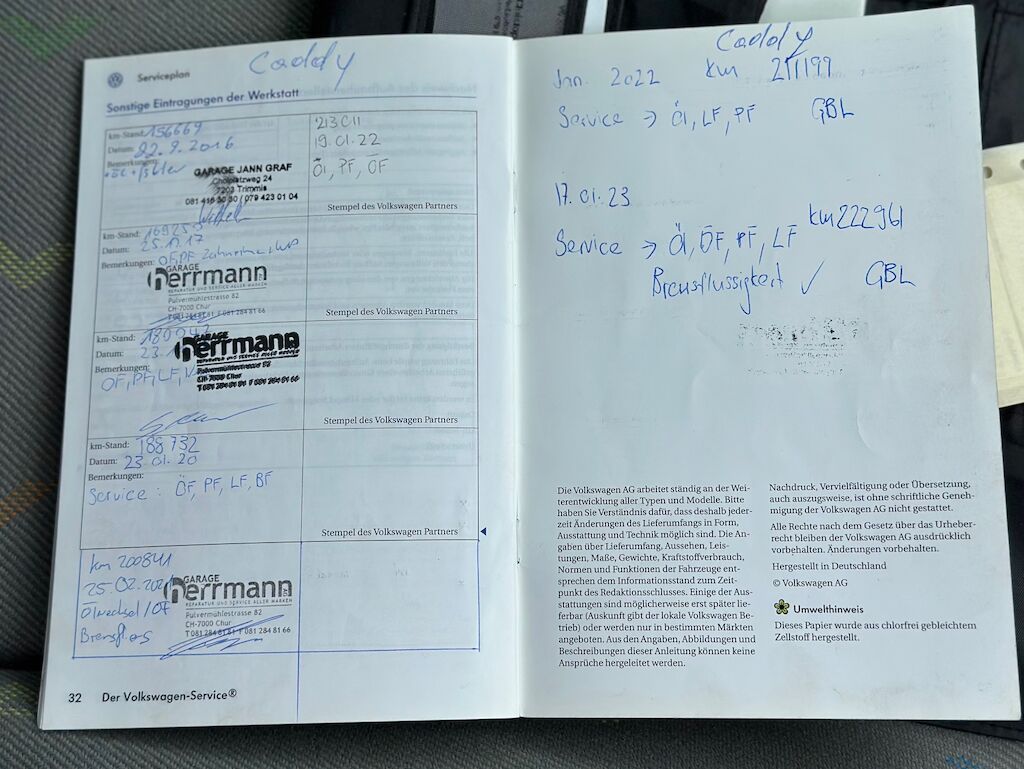 Caddy
Serviceplan
Sonstige Eintragungen der Werkstatt
km-Stand: 156669
Datum: 22.9.2016
Bemerkungen:
GARAGE JANN GRAF
24
7203 Trimmis
081 416 30 30 / 079 423 01 04
213 C11
19.01.22
Öl, PF, ÖF
Stempel des Volkswagen Partners
km-Stand:
Datum: 25.
Bemerkungen: ÖF, PF
GARAGE
herrmann
REPARATUR UND SERVICE ALLER MARKEN
Pulvermühlestrasse 82
CH-7000 Chur
T 081 284 81 81 F 081 284 81 66
Stempel des Volkswagen Partners
km-Stand:
Datum: 23.
Bemerkungen:
ÖF, PF, LF,
GARAGE
herrmann
REPARATUR UND SERVICE ALLER MARKEN
Pulvermühlestrasse 82
CH-7000 Chur
T 081 284 81 81 F 081 284 81 66
Stempel des Volkswagen Partners
km-Stand: 188 732
Datum: 23.01.20
Bemerkungen:
Service : ÖF, PF, LF, BF
Stempel des Volkswagen Partners
km 200841
25.02.202
Ölwechsel / ÖF
GARAGE
herrmann
REPARATUR UND SERVICE ALLER MARKEN
Pulvermühlestrasse 82
CH-7000 Chur
T 081 284 81 81 F 081 284 81 66
32 Der Volkswagen-Service®
Caddy
Jan. 2022 km 211199
Service → Öl, LF, PF GBL
17.01.23
km 222961
Service → Öl, ÖF, PF, LF
Bremsflüssigkeit ✓ GBL
Die Volkswagen AG arbeitet ständig an der Wei-
terentwicklung aller Typen und Modelle. Bitte
haben Sie Verständnis dafür, dass deshalb jeder-
zeit Änderungen des Lieferumfangs in Form,
Ausstattung und Technik möglich sind. Die An-
gaben über Lieferumfang, Aussehen, Leis-
tungen, Maße, Gewichte, Kraftstoffverbrauch,
Normen und Funktionen der Fahrzeuge ent-
sprechen dem Informationsstand zum Zeit-
punkt des Redaktionsschlusses. Einige der Aus-
stattungen sind möglicherweise erst später lie-
ferbar (Auskunft gibt der lokale Volkswagen Be-
trieb) oder werden nur in bestimmten Märkten
angeboten. Aus den Angaben, Abbildungen und
Beschreibungen dieser Anleitung können keine
Ansprüche hergeleitet werden.
Nachdruck, Vervielfältigung oder Übersetzung,
auch auszugsweise, ist ohne schriftliche Geneh-
migung der Volkswagen AG nicht gestattet.
Alle Rechte nach dem Gesetz über das Urheber-
recht bleiben der Volkswagen AG ausdrücklich
vorbehalten. Änderungen vorbehalten.
Hergestellt in Deutschland
© Volkswagen AG
Umwelthinweis
Dieses Papier wurde aus chlorfrei gebleichtem
Zellstoff hergestellt.